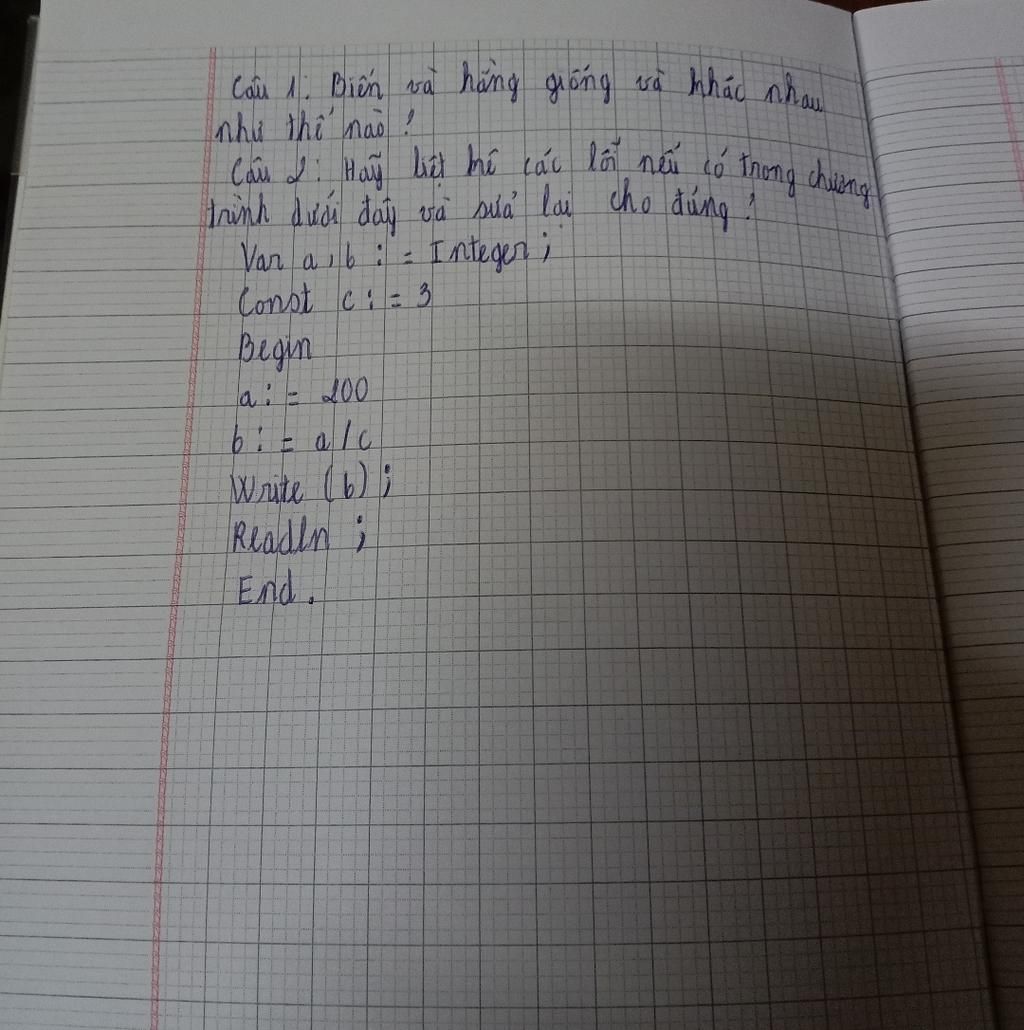 Câu 1: Biến và hằng giống và khác nhau
như thế nào?
Câu 2: Hãy liệt kê các lỗi nếu có trong chương
trình dưới đây và sửa lại cho đúng?
Var a, b := Integer;
Const c := 3
Begin
a := 200
b := a/c
Write (b);
Readln;
End.